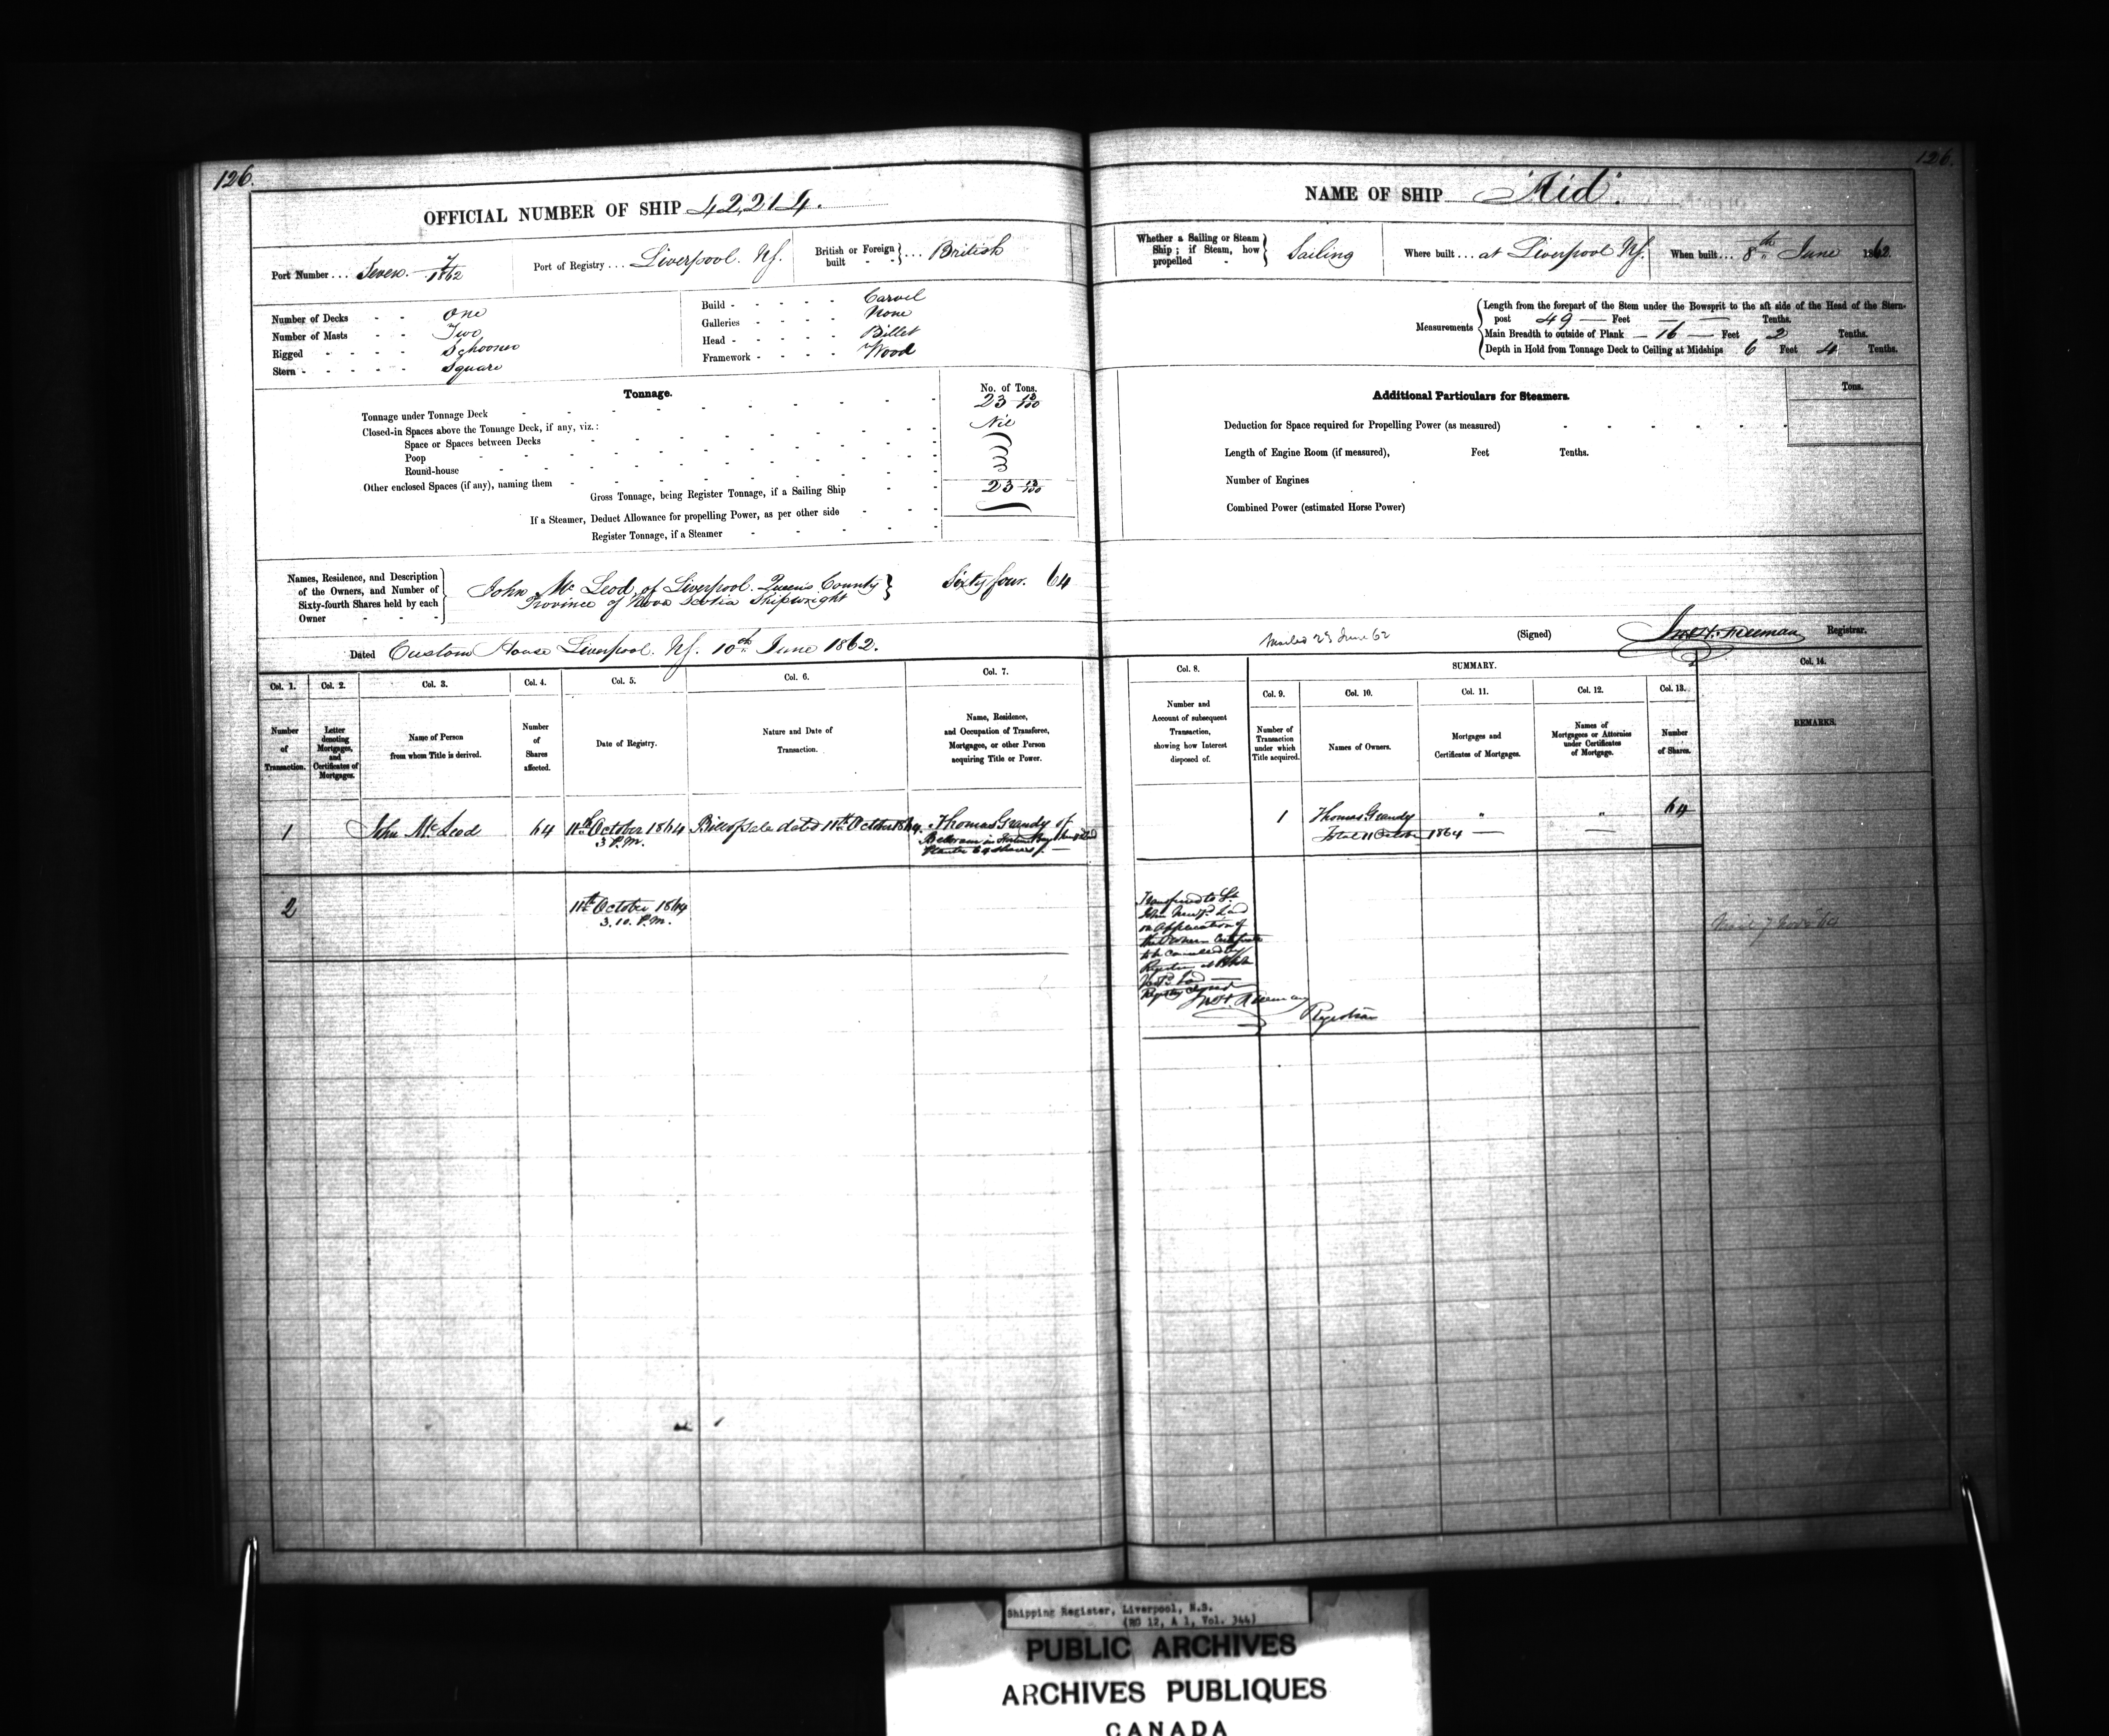 126.
OFFICIAL NUMBER OF SHIP 42,214.
Port Number ... Seven. 7/1862
Port of Registry ... Liverpool. NS.
British or Foreign built - - } ... British
Number of Decks - - One
Number of Masts - - Two
Rigged - - - - Schooner
Stern - - - - - Square
Build - - - - - Carvel
Galleries - - - - None
Head - - - - - Billet
Framework - - - - Wood
Tonnage.
No. of Tons.
Tonnage under Tonnage Deck 23
Closed-in Spaces above the Tonnage Deck, if any, viz.: Nil
Space or Spaces between Decks
Poop
Round-house
Other enclosed Spaces (if any), naming them
Gross Tonnage, being Register Tonnage, if a Sailing Ship 23
If a Steamer, Deduct Allowance for propelling Power, as per other side
Register Tonnage, if a Steamer
Names, Residence, and Description
of the Owners, and Number of
Sixty-fourth Shares held by each
Owner - - -
John Mc Leod, of Liverpool. Queens County } Sixty four. 64
Province of Nova Scotia Shipwright
Dated Custom House Liverpool. NS. 10th June 1862.
Col. 1. Col. 2. Col. 3. Col. 4. Col. 5. Col. 6. Col. 7.
Number of Transaction.
Letter denoting Mortgages, and Certificates of Mortgages.
Name of Person from whom Title is derived.
Number of Shares affected.
Date of Registry.
Nature and Date of Transaction.
Name, Residence, and Occupation of Transferee, Mortgagee, or other Person acquiring Title or Power.
1 John Mc Leod 64 11th October 1864 Bill of Sale dated 11th October 1864. Thomas Grandy of
3 P.M.
64 shares
2 11th October 1864
3.10. P.M.
126.
NAME OF SHIP "Aid".
Whether a Sailing or Steam Ship; if Steam, how propelled - } Sailing
Where built ... at Liverpool NS.
When built ... 8th June 1862.
Measurements
Length from the forepart of the Stem under the Bowsprit to the aft side of the Head of the Stern-
post 49 — Feet — — Tenths.
Main Breadth to outside of Plank — 16 — Feet 2 Tenths.
Depth in Hold from Tonnage Deck to Ceiling at Midships 6 Feet 4 Tenths.
Additional Particulars for Steamers.
Tons.
Deduction for Space required for Propelling Power (as measured)
Length of Engine Room (if measured), Feet Tenths.
Number of Engines
Combined Power (estimated Horse Power)
Mailed 23 June 62
(Signed) Freeman Registrar.
Col. 8. SUMMARY. Col. 14.
Col. 9. Col. 10. Col. 11. Col. 12. Col. 13.
Number and Account of subsequent Transaction, showing how Interest disposed of.
Number of Transaction under which Title acquired.
Names of Owners.
Mortgages and Certificates of Mortgages.
Names of Mortgagees or Attornies under Certificates of Mortgage.
Number of Shares.
REMARKS.
1 Thomas Grandy " " 64
11 October 1864 — —
Transferred to St.
John Newfd Land
on Application of
the Owner Certificate
to be Cancelled by
Registrar at St John
Newfd Land
Registry closed
Freeman
Registrar
Shipping Register, Liverpool, N.S.
(RG 12, A 1, Vol. 344)
PUBLIC ARCHIVES
ARCHIVES PUBLIQUES
CANADA